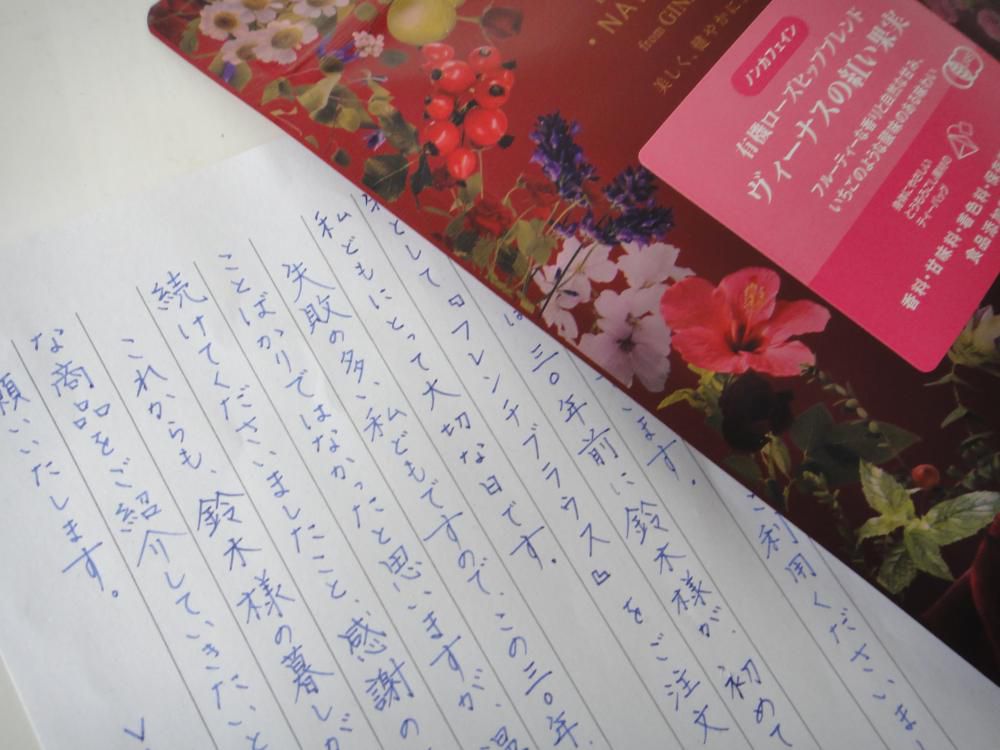 ご利用くださいま
います。
は三〇年前に鈴木様が、初めて
として『フレンチブラウス』をご注文
私どもにとって大切な日です。
失敗の多い私どもですので、この三〇年、
ことばかりではなかったと思いますが、温
続けてくださいましたこと、感謝の
これからも、鈴木様の暮しが
な商品をご紹介していきたいと
願いいたします。
from GIN
美しく、健やかに
ノンカフェイン
有機ローズヒップブレンド
ヴィーナスの紅い果実
フルーティーな香りと自然な甘み、
いちごのような酸味のある味わい
身体にやさしい
とうもろこし素材の
ティーバッグ
香料・甘味料・着色料・保存
食品添